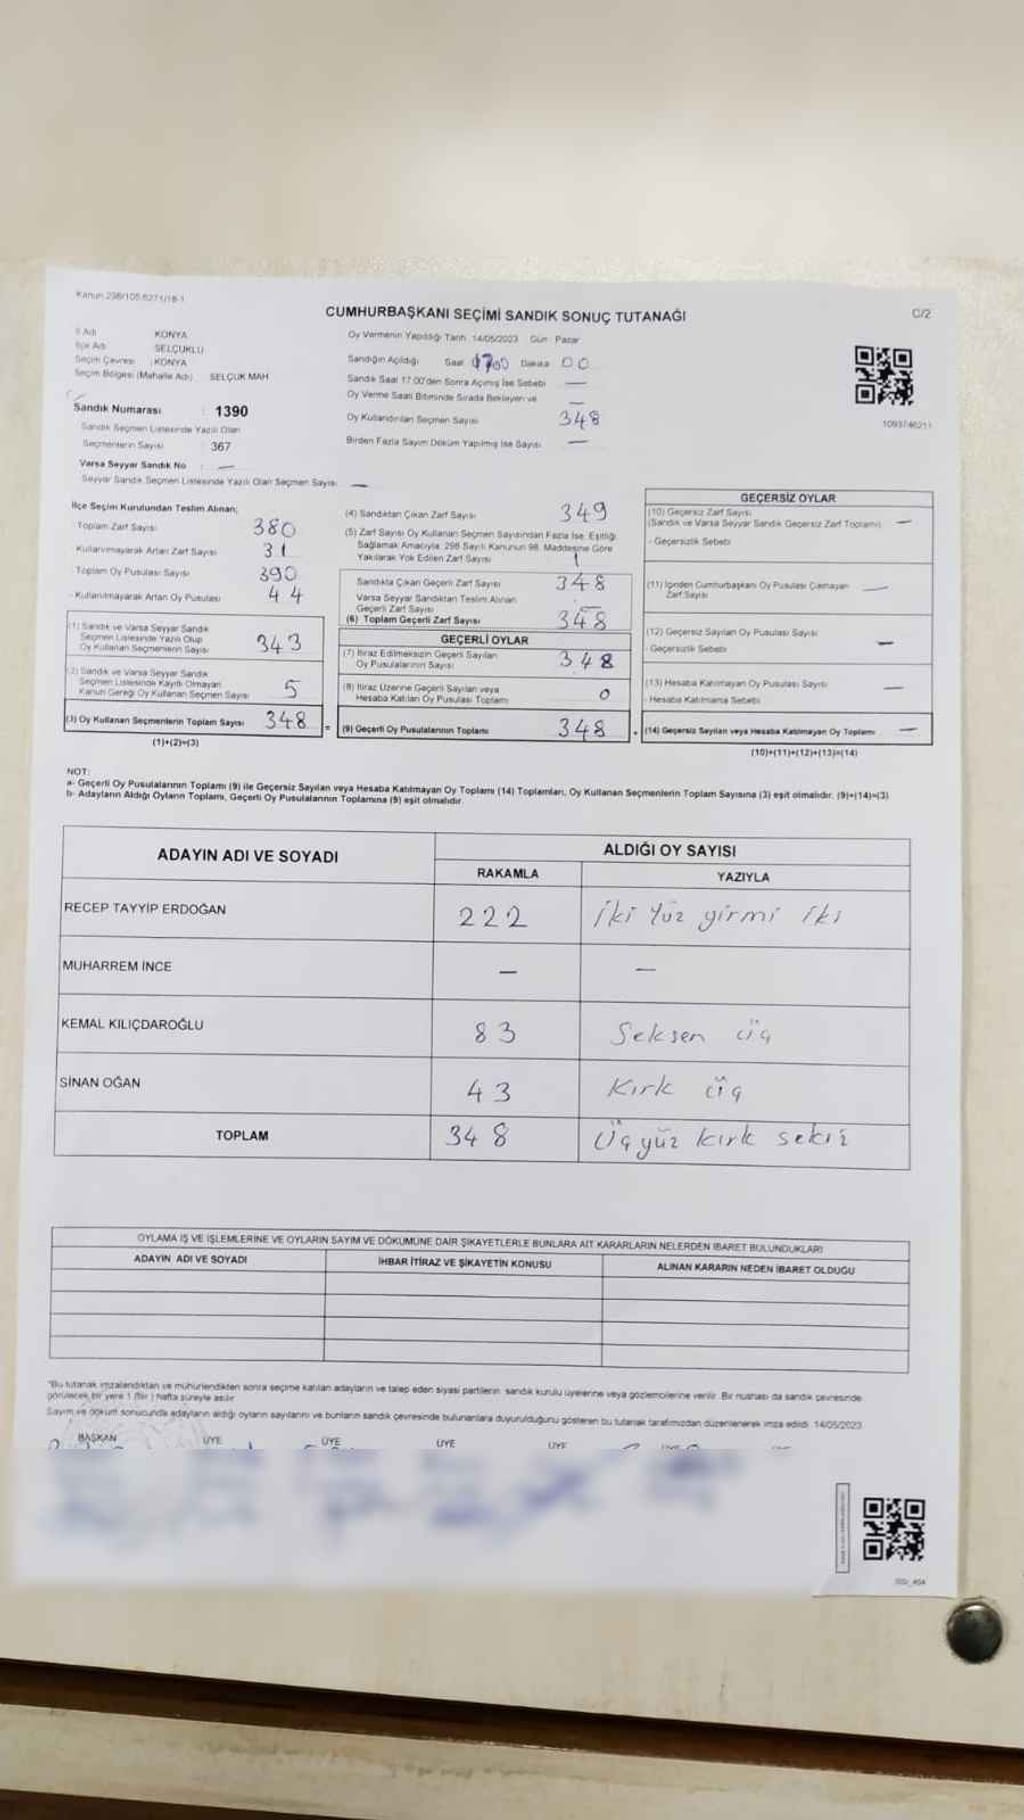 Kanun 298/105,6271/18-1
CUMHURBAŞKANI SEÇİMİ SANDIK SONUÇ TUTANAĞI
C/2
İl Adı KONYA
İlçe Adı SELÇUKLU
Seçim Çevresi : KONYA
Seçim Bölgesi (Mahalle Adı) SELÇUK MAH
Sandık Numarası : 1390
Sandık Seçmen Listesinde Yazılı Olan
Seçmenlerin Sayısı : 367
Varsa Seyyar Sandık No : —
Seyyar Sandık Seçmen Listesinde Yazılı Olan Seçmen Sayısı —
Oy Vermenin Yapıldığı Tarih 14/05/2023 Gün Pazar
Sandığın Açıldığı Saat 1700 Dakika 00
Sandık Saat 17:00'den Sonra Açılmış İse Sebebi —
Oy Verme Saati Bitiminde Sırada Bekleyen ve —
Oy Kullandırılan Seçmen Sayısı 348
Birden Fazla Sayım Döküm Yapılmış İse Sayısı —
İlçe Seçim Kurulundan Teslim Alınan;
Toplam Zarf Sayısı 380
Kullanılmayarak Artan Zarf Sayısı 31
Toplam Oy Pusulası Sayısı 390
- Kullanılmayarak Artan Oy Pusulası 44
(1) Sandık ve Varsa Seyyar Sandık
Seçmen Listesinde Yazılı Olup
Oy Kullanan Seçmenlerin Sayısı 343
(2) Sandık ve Varsa Seyyar Sandık
Seçmen Listesinde Kayıtlı Olmayan
Kanun Gereği Oy Kullanan Seçmen Sayısı 5
(3) Oy Kullanan Seçmenlerin Toplam Sayısı 348 =
(1)+(2)=(3)
(4) Sandıktan Çıkan Zarf Sayısı 349
(5) Zarf Sayısı Oy Kullanan Seçmen Sayısından Fazla İse, Eşitliği
Sağlamak Amacıyla, 298 Sayılı Kanunun 98. Maddesine Göre
Yakılarak Yok Edilen Zarf Sayısı 1
Sandıkta Çıkan Geçerli Zarf Sayısı 348
Varsa Seyyar Sandıktan Teslim Alınan
Geçerli Zarf Sayısı —
(6) Toplam Geçerli Zarf Sayısı 348
GEÇERLİ OYLAR
(7) İtiraz Edilmeksizin Geçerli Sayılan
Oy Pusulalarının Sayısı 348
(8) İtiraz Üzerine Geçerli Sayılan veya
Hesaba Katılan Oy Pusulası Toplamı 0
(9) Geçerli Oy Pusulalarının Toplamı 348 +
GEÇERSİZ OYLAR
(10) Geçersiz Zarf Sayısı
(Sandık ve Varsa Seyyar Sandık Geçersiz Zarf Toplamı) —
- Geçersizlik Sebebi
(11) İçinden Cumhurbaşkanı Oy Pusulası Çıkmayan —
Zarf Sayısı
(12) Geçersiz Sayılan Oy Pusulası Sayısı —
- Geçersizlik Sebebi
(13) Hesaba Katılmayan Oy Pusulası Sayısı —
- Hesaba Katılmama Sebebi
(14) Geçersiz Sayılan veya Hesaba Katılmayan Oy Toplamı —
(10)+(11)+(12)+(13)=(14)
NOT:
a- Geçerli Oy Pusulalarının Toplamı (9) ile Geçersiz Sayılan veya Hesaba Katılmayan Oy Toplamı (14) Toplamları, Oy Kullanan Seçmenlerin Toplam Sayısına (3) eşit olmalıdır. (9)+(14)=(3)
b- Adayların Aldığı Oyların Toplamı, Geçerli Oy Pusulalarının Toplamına (9) eşit olmalıdır.
ADAYIN ADI VE SOYADI
ALDIĞI OY SAYISI
RAKAMLA YAZIYLA
RECEP TAYYİP ERDOĞAN 222 iki Yüz girmi iki
MUHARREM İNCE — —
KEMAL KILIÇDAROĞLU 83 Seksen üç
SİNAN OĞAN 43 Kırk üç
TOPLAM 348 Üçyüz kırk sekiz
OYLAMA İŞ VE İŞLEMLERİNE VE OYLARIN SAYIM VE DÖKÜMÜNE DAİR ŞİKAYETLERLE BUNLARA AİT KARARLARIN NELERDEN İBARET BULUNDUKLARI
ADAYIN ADI VE SOYADI İHBAR İTİRAZ VE ŞİKAYETİN KONUSU ALINAN KARARIN NEDEN İBARET OLDUĞU
*Bu tutanak imzalandıktan ve mühürlendikten sonra seçime katılan adayların ve talep eden siyasi partilerin sandık kurulu üyelerine veya gözlemcilerine verilir. Bir nüshası da sandık çevresinde
görülecek bir yere 1 (Bir) hafta süreyle asılır
Sayım ve döküm sonucunda adayların aldığı oyların sayılarını ve bunların sandık çevresinde bulunanlara duyurulduğunu gösteren bu tutanak tarafımızdan düzenlenerek imza edildi. 14/05/2023
BAŞKAN ÜYE ÜYE ÜYE ÜYE